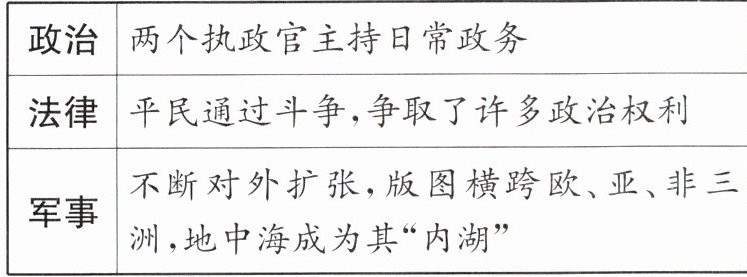 政治 两个执政官主持日常政务
法律 平民通过斗争,争取了许多政治权利
军事 不断对外扩张,版图横跨欧、亚、非三
洲,地中海成为其“内湖”